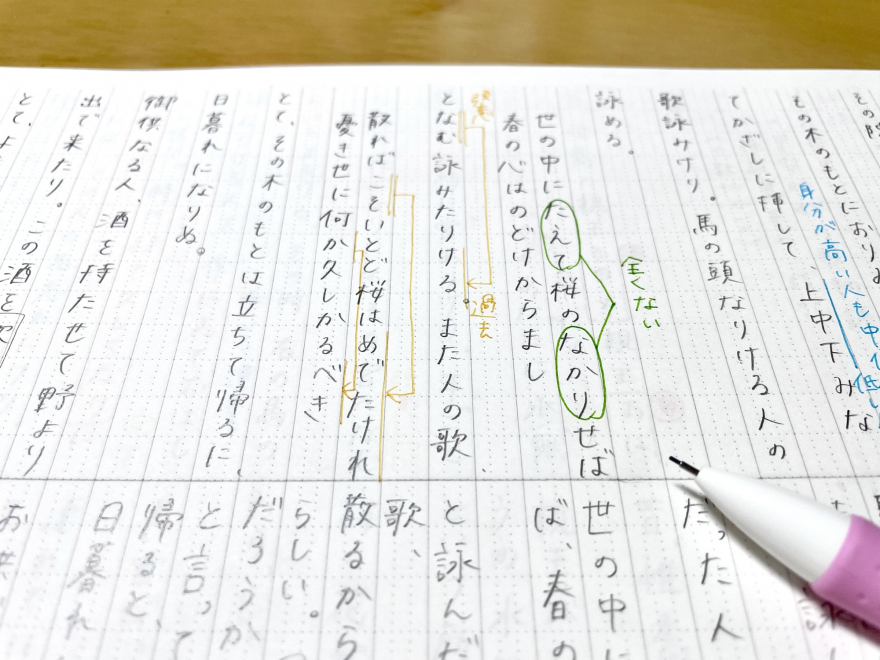 その
もの木のもとにおりゐ
てかざしに挿して、上中下みな
身分が高い人も中くらい
歌詠みけり。馬の頭なりける人の
詠める。
世の中にたえて桜のなかりせば
全くない
春の心はのどけからまし
となむ詠みたりける。また人の歌、
過去
散ればこそいとど桜はめでたけれ
憂き世に何か久しかるべき
とて、その木のもとは立ちて帰るに、
日暮れになりぬ。
御供なる人、酒を持たせて野より
出で来たり。この酒を飲
とて、よ
だった人
世の中に
ば、春の
と詠んだ
歌、
散るから
らしい。
だろうか
と言って
帰ると、
日暮れ
お供